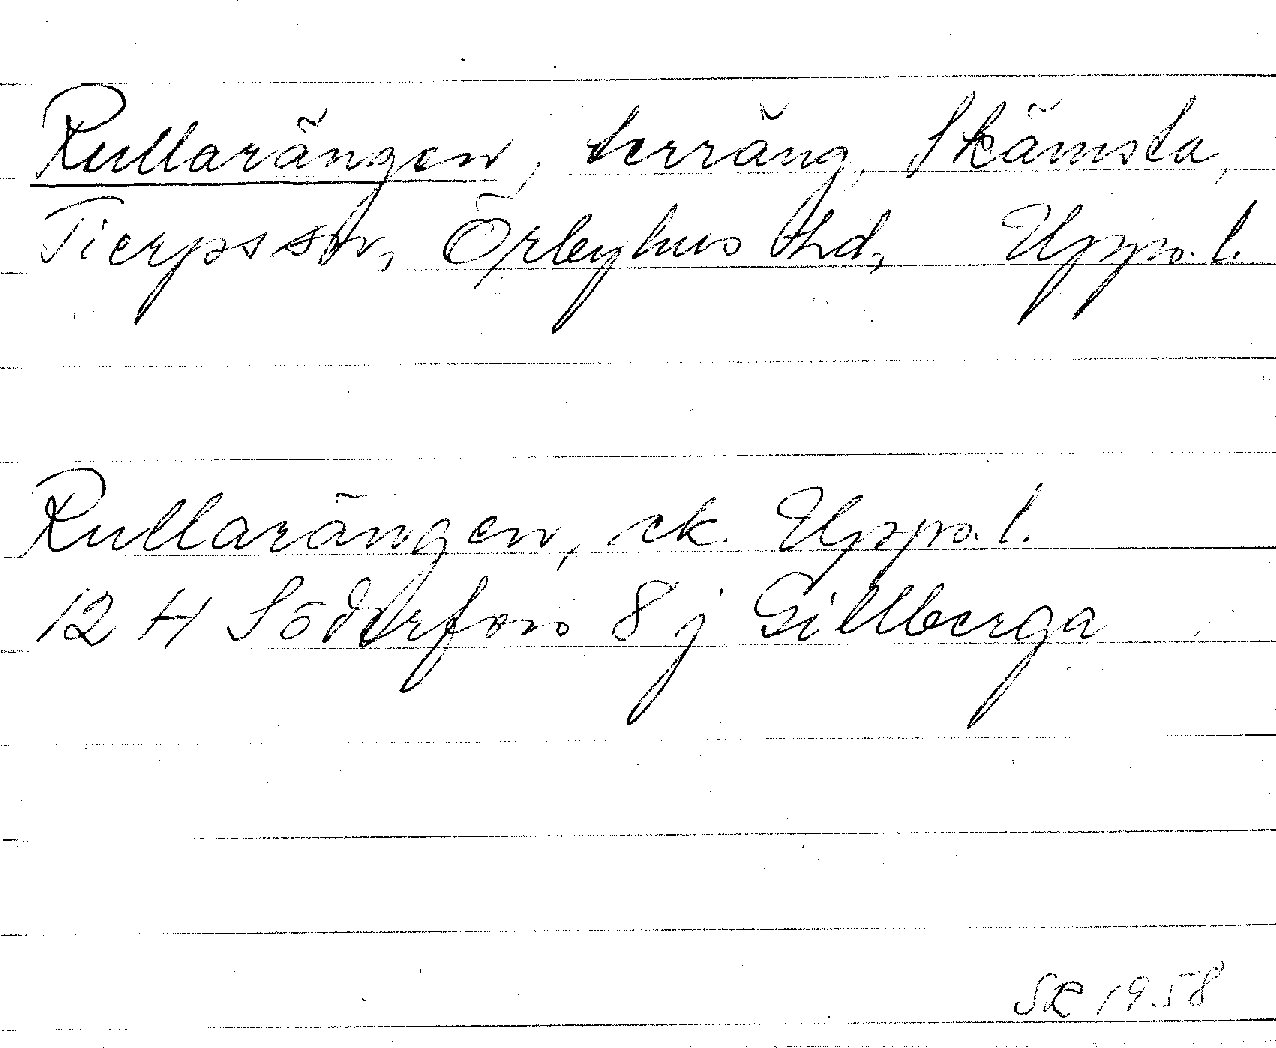 Rullarängen, terräng, Skämsta,
Tierps sn, Örbyhus hd, Upps. l.
Rullarängen, ek. Upps. l.
12 H Söderfors 8 j Gillberga
SR 1958